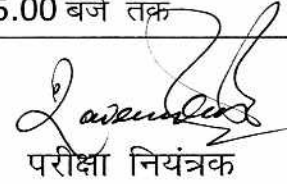 5.00 बजे तक
परीक्षा नियंत्रक